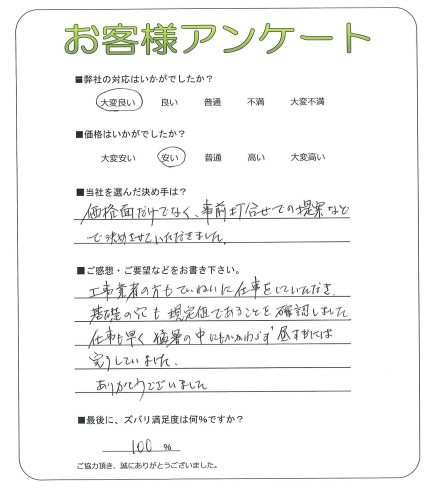 お客様アンケート
■弊社の対応はいかがでしたか？
大変良い 良い 普通 不満 大変不満
■価格はいかがでしたか？
大変安い 安い 普通 高い 大変高い
■当社を選んだ決め手は？
価格面だけでなく、事前打合せでの提案などで
決めさせていただきました。
■ご感想・ご要望などをお書き下さい。
工事業者の方もていねいに仕事をしていただき
基礎の穴も規定値であることを確認しました
仕事も早く猛暑の中にもかかわらず昼までには
完了していました。
ありがとうございました
■最後に、ズバリ満足度は何％ですか？
100 %
ご協力頂き、誠にありがとうございました。